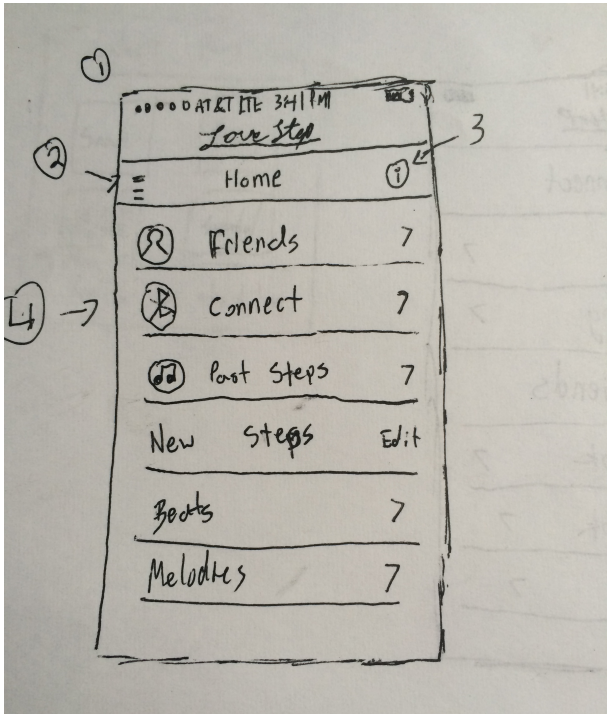 1
AT&T LTE 3:41 PM
Love Step
2
Home
i
3
Friends >
4
Connect >
Past Steps >
New Steps Edit
Beats >
Melodies >